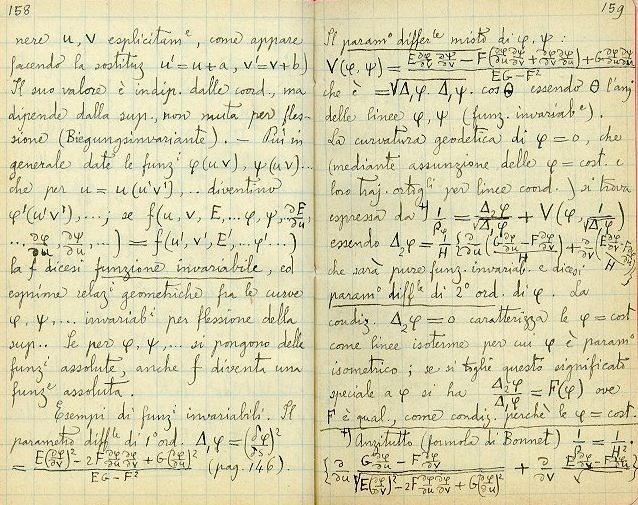 158
nere u, v esplicitamᵉ, come appare
facendo la sostituzⁱ u'=u+a, v'=v+b)
Il suo valore è indip. dalle coord., ma
dipende dalla sup., non muta per fles-
sione (Biegungsinvariante). — Più in
generale date le funzⁱ φ(uv), ψ(uv)...
che per u = u(u'v'),... diventino
φ'(u'v'),...; se f(u, v, E,... φ, ψ, ∂E/∂u,
.., ∂φ/∂u, ∂ψ/∂u, ...) = f(u', v', E',.. φ'...)
la f dicesi funzione invariabile, ed
esprime relazⁱ geometriche fra le curve
φ, ψ,... invariabⁱ per flessione della
sup.. Se per φ, ψ,... si pongono delle
funzⁱ assolute, anche f diventa una
funzᵉ assoluta.
Esempi di funzⁱ invariabili. Il
parametro diffˡᵉ di 1° ord. Δ₁φ = (∂φ/∂s)²
= (E(∂φ/∂v)² - 2F ∂φ/∂u ∂φ/∂v + G(∂φ/∂u)²)/(EG-F²) (pag. 146).
159
Il paramᵒ differˡᵉ misto di φ, ψ :
∇(φ, ψ) = (E ∂φ/∂v ∂ψ/∂v - F(∂φ/∂u ∂ψ/∂v + ∂φ/∂v ∂ψ/∂u) + G ∂φ/∂u ∂ψ/∂u)/(EG-F²)
che è = √Δ₁φ. Δ₁ψ. cosθ essendo θ l'angᵒ
delle linee φ, ψ (funz. invariabᵉ).
La curvatura geodetica di φ=0, che
(mediante assunzione delle φ=cost. e
loro traj. ortogˡⁱ per linee coord.) si trova
espressa da †) 1/ρφ = Δ₂φ/√Δ₁φ + ∇(φ, 1/√Δ₁φ)
essendo Δ₂φ = 1/H {∂/∂u ((G ∂φ/∂u - F ∂φ/∂v)/H) + ∂/∂v ((E ∂φ/∂v - F ∂φ/∂u)/H)}
che sarà pure funz. invariab. e dicesi
paramᵒ diffˡᵉ di 2° ord. di φ. La
condiz. Δ₂φ = 0 caratterizza le φ=cost
come linee isoterme per cui φ è paramᵒ
isometrico; se si toglie questo significato
speciale a φ si ha Δ₂φ/Δ₁φ = F(φ) ove
F è qual., come condiz. perchè le φ=cost.
†) Anzitutto (formola di Bonnet) 1/ρφ = 1/H .
{∂/∂u (G ∂φ/∂u - F ∂φ/∂v)/√(E(∂φ/∂v)² - 2F ∂φ/∂u ∂φ/∂v + G(∂φ/∂u)²) + ∂/∂v (E ∂φ/∂v - F ∂φ/∂u)/√ }